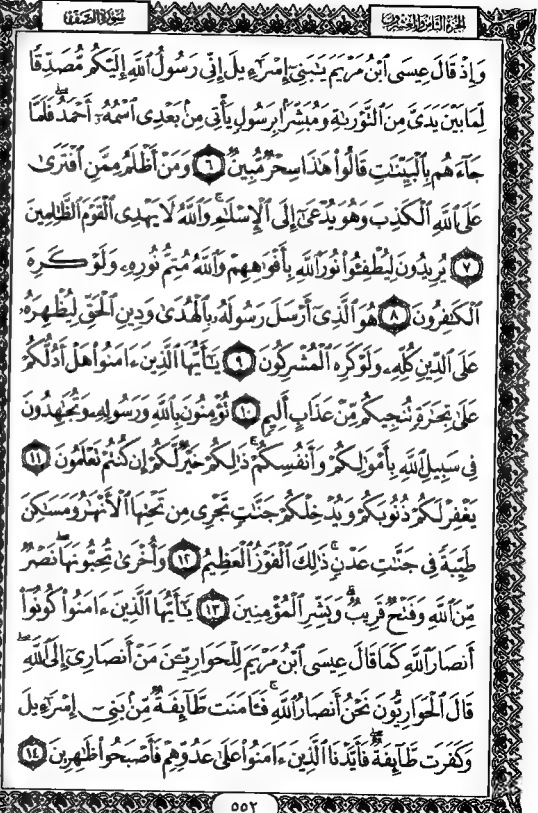 سُورَةُ الصَّفِّ
الجُزْءُ الثَّامِنُ وَالعِشْرُونَ
وَإِذْ قَالَ عِيسَى ٱبْنُ مَرْيَمَ يَٰبَنِىٓ إِسْرَٰٓءِيلَ إِنِّى رَسُولُ ٱللَّهِ إِلَيْكُم مُّصَدِّقًا
لِّمَا بَيْنَ يَدَىَّ مِنَ ٱلتَّوْرَىٰةِ وَمُبَشِّرًۢا بِرَسُولٍ يَأْتِى مِنۢ بَعْدِى ٱسْمُهُۥٓ أَحْمَدُۖ فَلَمَّا
جَآءَهُم بِٱلْبَيِّنَٰتِ قَالُوا۟ هَٰذَا سِحْرٌ مُّبِينٌ ٦ وَمَنْ أَظْلَمُ مِمَّنِ ٱفْتَرَىٰ
عَلَى ٱللَّهِ ٱلْكَذِبَ وَهُوَ يُدْعَىٰٓ إِلَى ٱلْإِسْلَٰمِۚ وَٱللَّهُ لَا يَهْدِى ٱلْقَوْمَ ٱلظَّٰلِمِينَ
٧ يُرِيدُونَ لِيُطْفِـُٔوا۟ نُورَ ٱللَّهِ بِأَفْوَٰهِهِمْ وَٱللَّهُ مُتِمُّ نُورِهِۦ وَلَوْ كَرِهَ
ٱلْكَٰفِرُونَ ٨ هُوَ ٱلَّذِىٓ أَرْسَلَ رَسُولَهُۥ بِٱلْهُدَىٰ وَدِينِ ٱلْحَقِّ لِيُظْهِرَهُۥ
عَلَى ٱلدِّينِ كُلِّهِۦ وَلَوْ كَرِهَ ٱلْمُشْرِكُونَ ٩ يَٰٓأَيُّهَا ٱلَّذِينَ ءَامَنُوا۟ هَلْ أَدُلُّكُمْ
عَلَىٰ تِجَٰرَةٍ تُنجِيكُم مِّنْ عَذَابٍ أَلِيمٍ ١٠ تُؤْمِنُونَ بِٱللَّهِ وَرَسُولِهِۦ وَتُجَٰهِدُونَ
فِى سَبِيلِ ٱللَّهِ بِأَمْوَٰلِكُمْ وَأَنفُسِكُمْۚ ذَٰلِكُمْ خَيْرٌ لَّكُمْ إِن كُنتُمْ تَعْلَمُونَ ١١
يَغْفِرْ لَكُمْ ذُنُوبَكُمْ وَيُدْخِلْكُمْ جَنَّٰتٍ تَجْرِى مِن تَحْتِهَا ٱلْأَنْهَٰرُ وَمَسَٰكِنَ
طَيِّبَةً فِى جَنَّٰتِ عَدْنٍۚ ذَٰلِكَ ٱلْفَوْزُ ٱلْعَظِيمُ ١٢ وَأُخْرَىٰ تُحِبُّونَهَاۖ نَصْرٌ
مِّنَ ٱللَّهِ وَفَتْحٌ قَرِيبٌۗ وَبَشِّرِ ٱلْمُؤْمِنِينَ ١٣ يَٰٓأَيُّهَا ٱلَّذِينَ ءَامَنُوا۟ كُونُوٓا۟
أَنصَارَ ٱللَّهِ كَمَا قَالَ عِيسَى ٱبْنُ مَرْيَمَ لِلْحَوَارِيِّـۧنَ مَنْ أَنصَارِىٓ إِلَى ٱللَّهِۖ
قَالَ ٱلْحَوَارِيُّونَ نَحْنُ أَنصَارُ ٱللَّهِۖ فَـَٔامَنَت طَّآئِفَةٌ مِّنۢ بَنِىٓ إِسْرَٰٓءِيلَ
وَكَفَرَت طَّآئِفَةٌۖ فَأَيَّدْنَا ٱلَّذِينَ ءَامَنُوا۟ عَلَىٰ عَدُوِّهِمْ فَأَصْبَحُوا۟ ظَٰهِرِينَ ١٤
٥٥٢